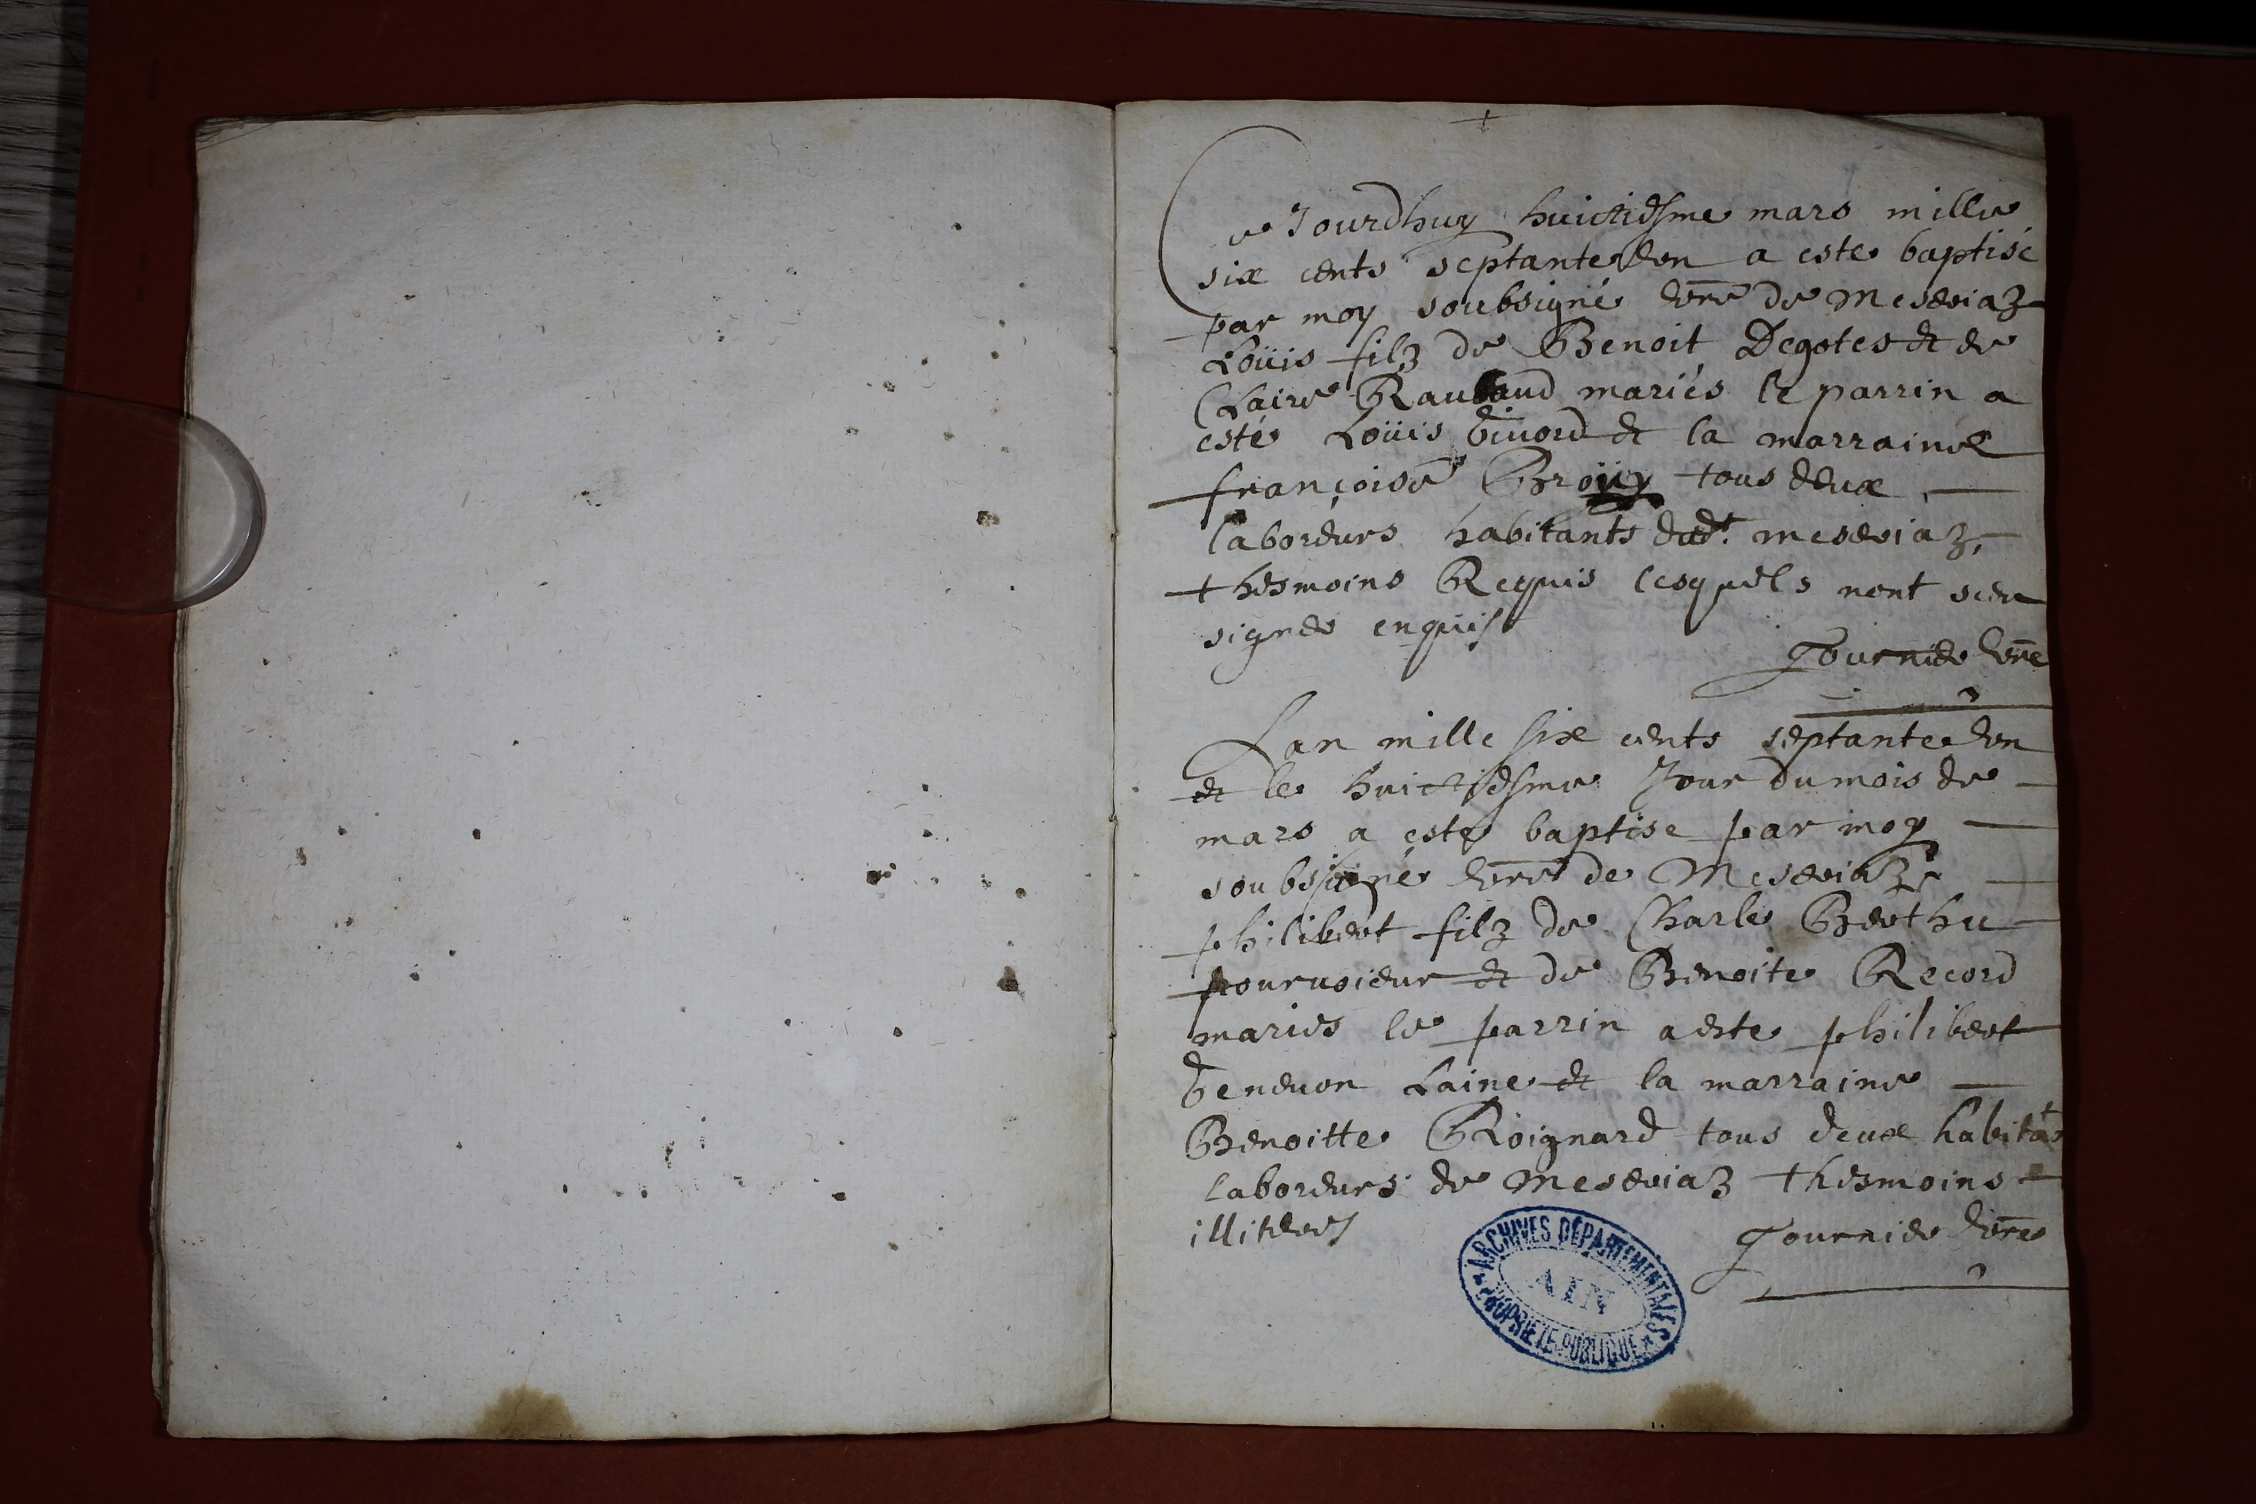 +
Ce Jourdhuy huictiesme mars mille
six cents septante un a este baptisé
par moy soubsigné vicre de Meseriaz
Loüis filz de Benoit Degotes et de
Claire mariés le parrin a
esté Loüis et la marraine
françoise tous deux
laboreurs habitants dudt. meseriaz,
thesmoins Requis lesquels nont sceu
signer enquis
Tournier vicre
Lan mille six cents septante un
et le huictiesme Jour du mois de
mars a este baptise par moy
soubsigné vicre de Meseriaz
philibert filz de Charle Berthu
pourvoieur et de Benoite Record
maries le parrin a este philibert
Genevon Laine et la marraine
Benoitte Roignard tous deux habitäts
laboreurs de Meseriaz thesmoins
illiteres
Tournier vicre
ARCHIVES DÉPARTEMENTALES
AIN
PROPRIÉTÉ PUBLIQUE